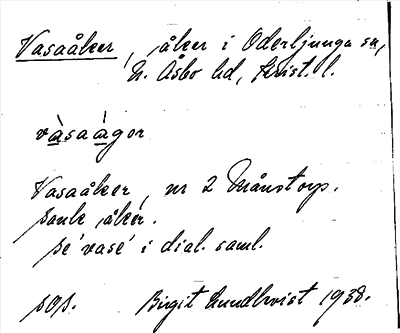 Vasaåker, åker i Oderljunga sn,
N. Åsbo hd, Krist. l.
vàsaágor
Vasaåker, nr 2 Månstorp.
sank åker.
se 'vase' i dial. saml.
sop. Birgit Lundkvist 1938.